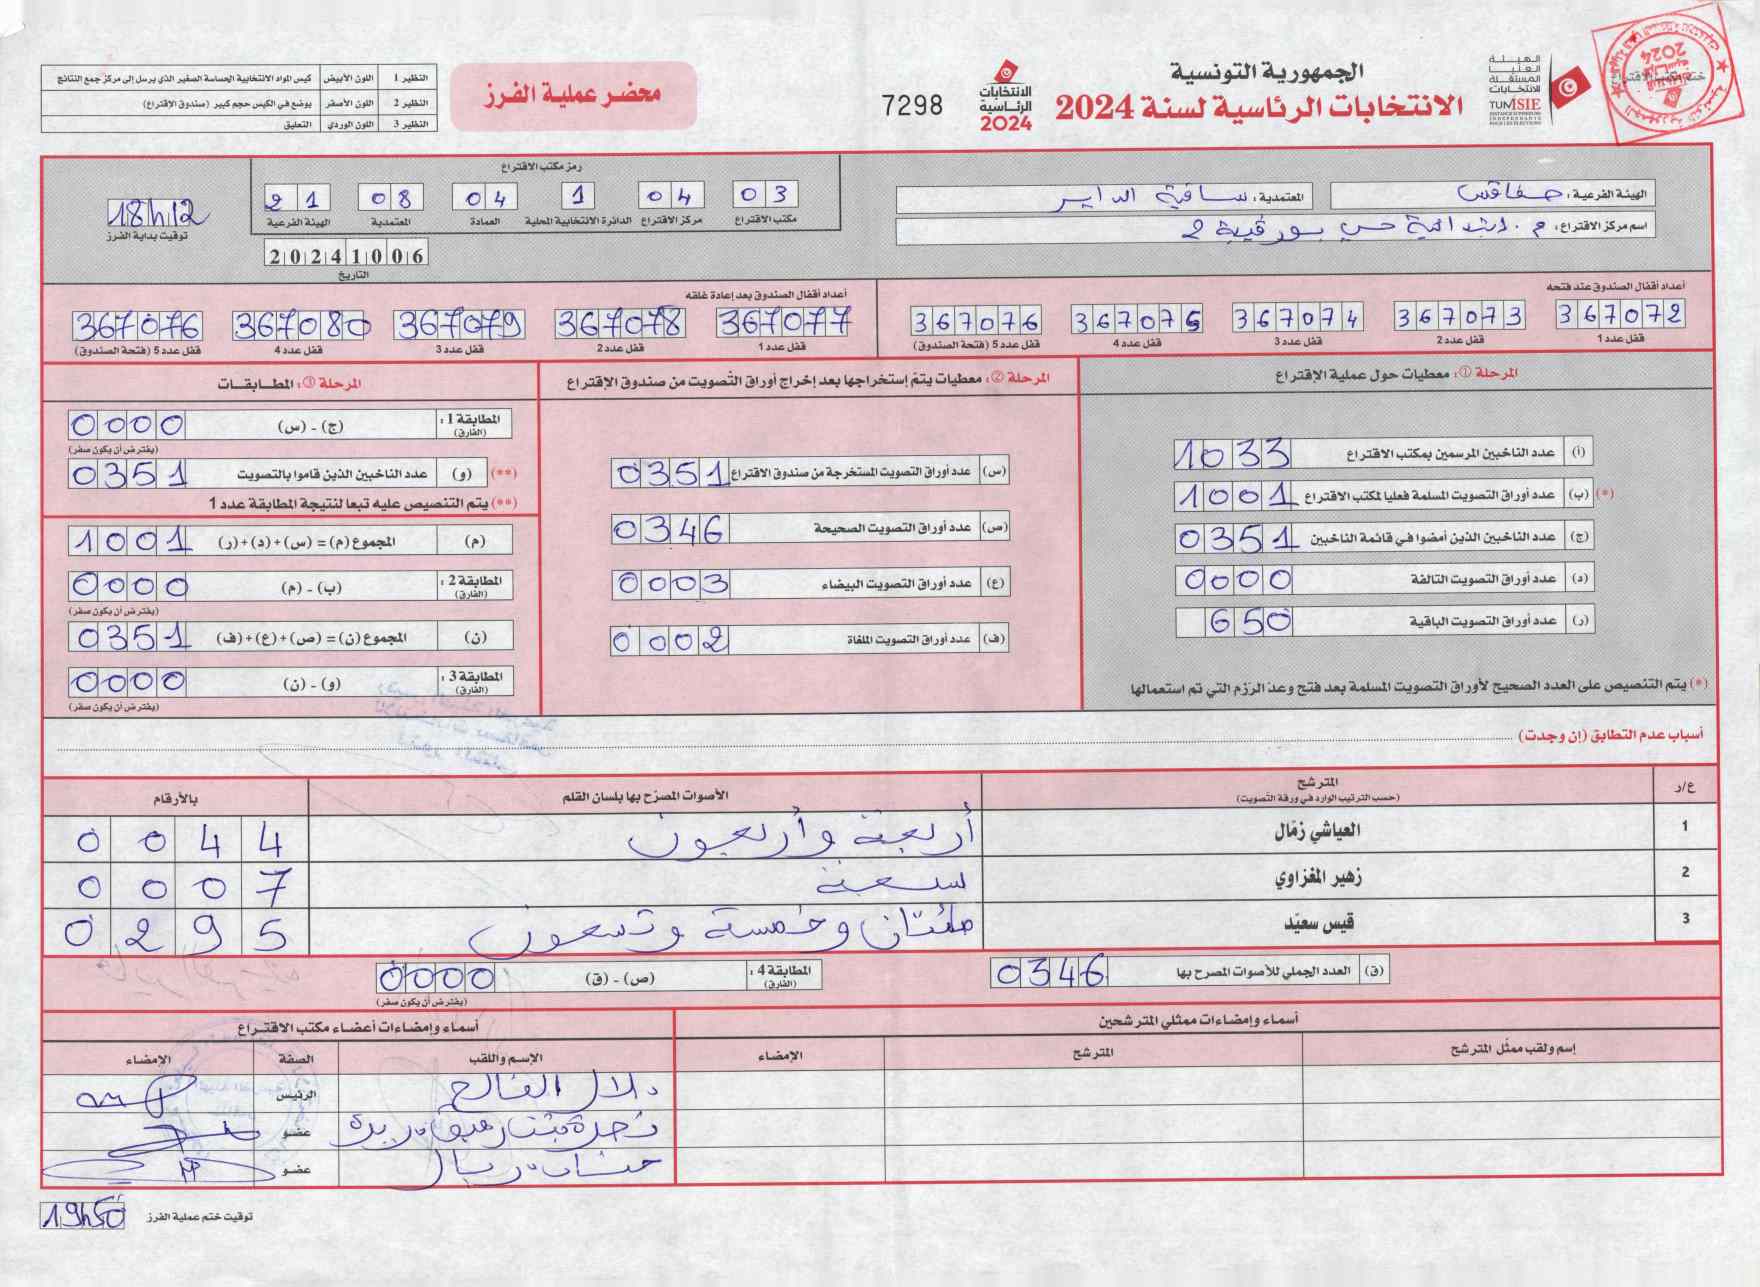 الجمهورية التونسية
الانتخابات الرئاسية لسنة 2024
الهيئة العليا المستقلة للانتخابات
TUNISIE
INSTANCE SUPÉRIEURE INDÉPENDANTE POUR LES ÉLECTIONS
الانتخابات الرئاسية 2024
7298
محضر عملية الفرز
النظير 1 اللون الأبيض كيس المواد الانتخابية الحساسة الصغير الذي يرسل إلى مركز جمع النتائج
النظير 2 اللون الأصفر يوضع في الكيس حجم كبير (صندوق الإقتراع)
النظير 3 اللون الوردي التعليق
الهيئة الفرعية: صفاقس
المعتمدية: ساقية الداير
اسم مركز الاقتراع: م. ابتدائية حي بورقيبة 2
رمز مكتب الاقتراع
03 مكتب الاقتراع
04 مركز الاقتراع
1 الدائرة الانتخابية المحلية
04 العمادة
08 المعتمدية
21 الهيئة الفرعية
20241006
التاريخ
18h12
توقيت بداية الفرز
أعداد أقفال الصندوق عند فتحه
367072 367073 367074 367075 367076
قفل عدد 1 قفل عدد 2 قفل عدد 3 قفل عدد 4 قفل عدد 5 (فتحة الصندوق)
أعداد أقفال الصندوق بعد إعادة غلقه
367077 367078 367079 367080 367076
قفل عدد 1 قفل عدد 2 قفل عدد 3 قفل عدد 4 قفل عدد 5 (فتحة الصندوق)
المرحلة ①: معطيات حول عملية الإقتراع
(أ) عدد الناخبين المرسمين بمكتب الاقتراع 1033
(*) (ب) عدد أوراق التصويت المسلمة فعليا لمكتب الاقتراع 1001
(ج) عدد الناخبين الذين أمضوا في قائمة الناخبين 0351
(د) عدد أوراق التصويت التالفة 0000
(ر) عدد أوراق التصويت الباقية 650
(*) يتم التنصيص على العدد الصحيح لأوراق التصويت المسلمة بعد فتح وعد الرزم التي تم استعمالها
المرحلة ②: معطيات يتم إستخراجها بعد إخراج أوراق التصويت من صندوق الإقتراع
(س) عدد أوراق التصويت المستخرجة من صندوق الاقتراع 0351
(ص) عدد أوراق التصويت الصحيحة 0346
(ع) عدد أوراق التصويت البيضاء 0003
(ف) عدد أوراق التصويت الملغاة 0002
المرحلة ③: المطابقات
المطابقة 1: (الفارق) (ج) - (س) 0000
(يفترض أن يكون صفر)
(**) (و) عدد الناخبين الذين قاموا بالتصويت 0351
(**) يتم التنصيص عليه تبعا لنتيجة المطابقة عدد 1
(م) المجموع (م) = (س)+(د)+(ر) 1001
المطابقة 2: (الفارق) (ب) - (م) 0000
(يفترض أن يكون صفر)
(ن) المجموع (ن) = (ص)+(ع)+(ف) 0351
المطابقة 3: (الفارق) (و) - (ن) 0000
(يفترض أن يكون صفر)
أسباب عدم التطابق (إن وجدت)
ع/ر المترشح (حسب الترتيب الوارد في ورقة التصويت) الأصوات المصرح بها بلسان القلم بالأرقام
1 العياشي زمّال أربعة وأربعون 0044
2 زهير المغزاوي سبعة 0007
3 قيس سعيّد مائتان وخمسة وتسعون 0295
(ق) العدد الجملي للأصوات المصرح بها 0346
المطابقة 4: (الفارق) (ص) - (ق) 0000
(يفترض أن يكون صفر)
أسماء وإمضاءات ممثلي المترشحين
إسم ولقب ممثل المترشح المترشح الإمضاء
أسماء وإمضاءات أعضاء مكتب الاقتراع
الإسم واللقب الصفة الإمضاء
دلال الفالح الرئيس
عضو
عضو
توقيت ختم عملية الفرز 19h50